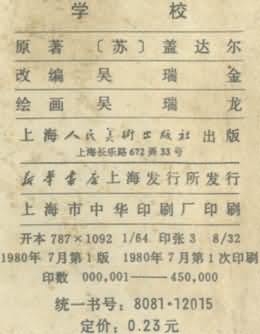 学 校
原 著 〔苏〕 盖 达 尔
改 编 吴 瑞 金
绘 画 吴 瑞 龙
上海人民美術出版社出版
上海长乐路672弄33号
新华书店上海发行所发行
上海市中华印刷厂印刷
开本 787×1092 1/64 印张 3 8/32
1980年7月第1版 1980年7月第1次印刷
印数 000,001——450,000
统一书号: 8081·12015
定价: 0.23元